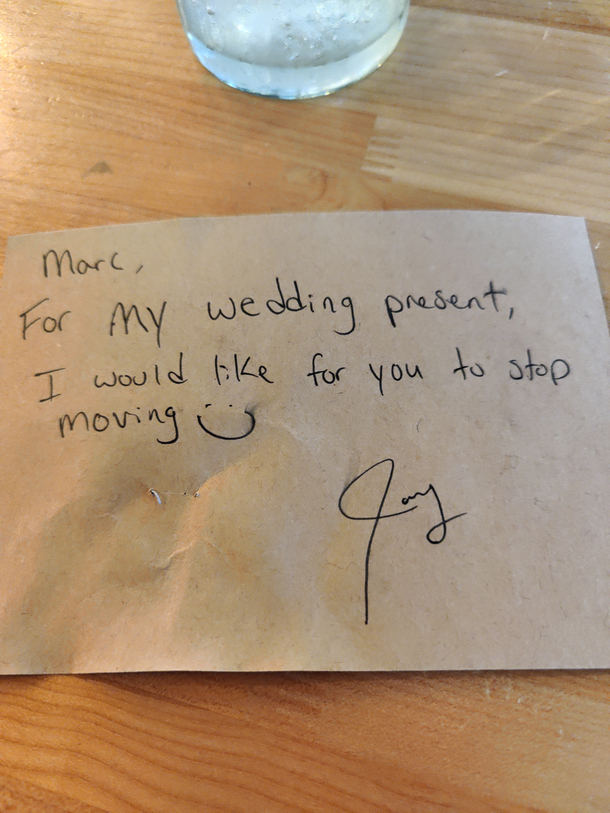 Marc,
For MY wedding present,
I would like for you to stop
moving :)
Jay